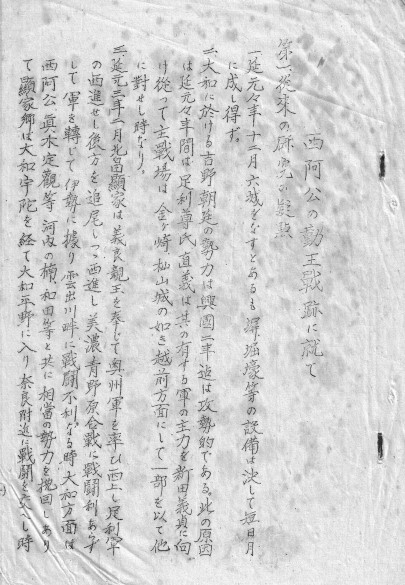 西阿公の勤王戦跡に就て
第一、従来の研究の疑点
一、延元々年十二月六城をなすとあるも深堀壕等の設備は決して短日月
に成し得ず。
二、大和に於ける吉野朝廷の勢力は興國二年迄は攻勢的である。此の原因
は延元々年間は足利尊氏直義は其の有する軍の主力を新田義貞に向
け従って主戦場は金ヶ崎、杣山城の如き越前方面にして一部を以て他
に對せし時なり。
三、延元三年一月北畠顕家は義良親王を奉じて奥州軍を率ひ西上し足利軍
の西進せし後方を追尾しつゝ西進し美濃青野原合戦に戦闘利あらず
して軍を轉じて伊勢に據り雲出川畔に戦闘不利なる時、大和方面は
西阿公真木定観等河内の楠和田等と共に相當の勢力を挽回しあり
て顕家郷は大和宇陀を経て大和平野に入り奈良附近に戦闘を交へし時